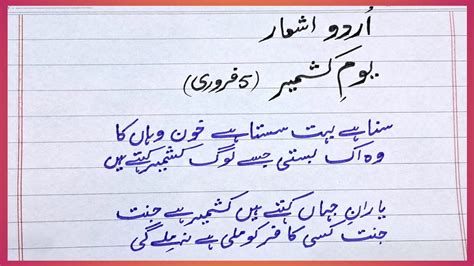 اُردو اشعار
یومِ کشمیر (5 فروری)
سنا ہے بہت سستا ہے خون وہاں کا
وہ اک بستی جسے لوگ کشمیر کہتے ہیں
یارانِ جہاں کہتے ہیں کشمیر ہے جنت
جنت کسی کافر کو ملی ہے نہ ملے گی